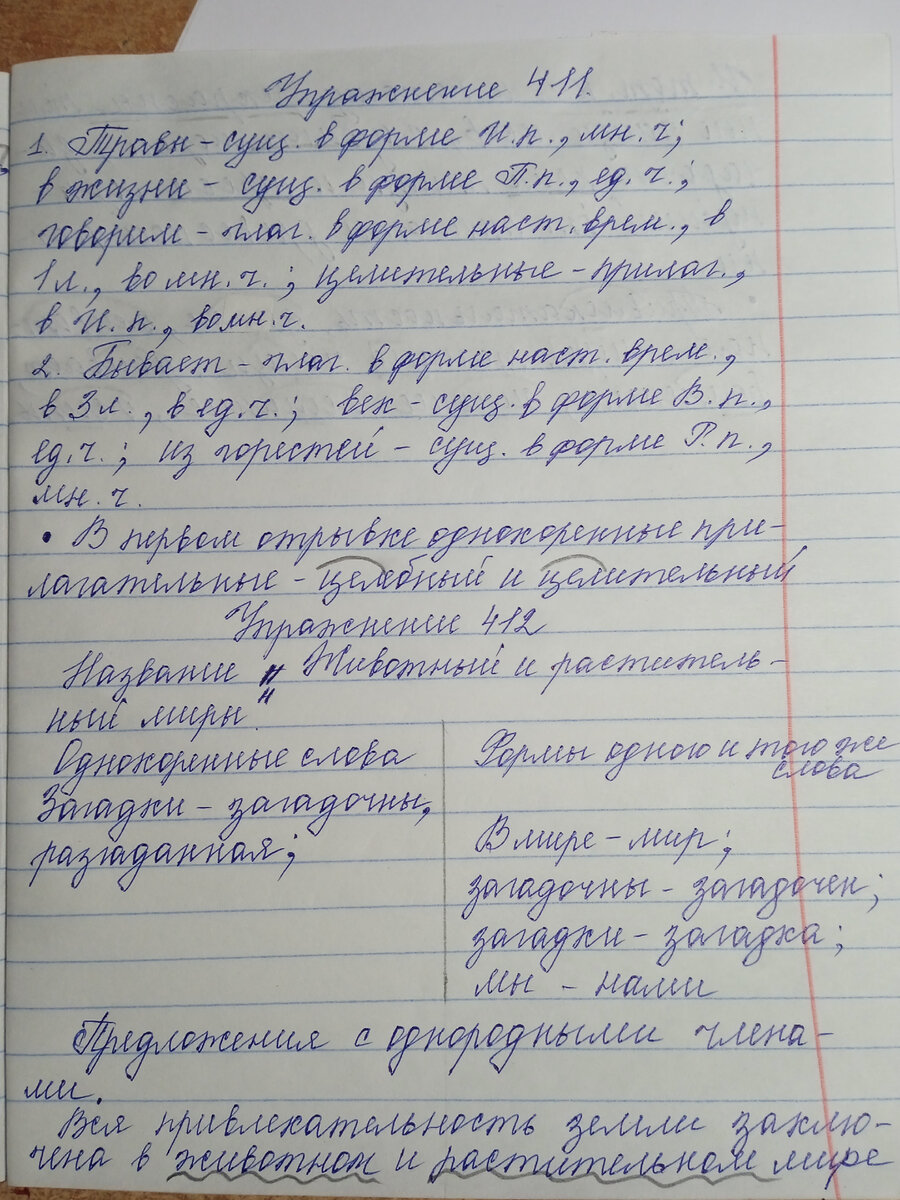 Упражнение 411.
1. Травы - сущ. в форме И.п., мн.ч;
в жизни - сущ. в форме П.п., ед.ч.;
говорим - глаг. в форме наст.врем., в
1л., во мн.ч.; целительные - прилаг.,
в И.п., во мн.ч.
2. Бывает - глаг. в форме наст. врем.,
в 3л., в ед.ч.; век - сущ. в форме В.п.,
ед.ч.; из горестей - сущ. в форме Р.п.,
мн.ч.
• В первом отрывке однокоренные при-
лагательные - целебный и целительный
Упражнение 412
Название "Животный и раститель-
ный миры".
Однокоренные слова
Загадки - загадочны,
разгаданная;
Формы одного и того же
слова
В мире - мир;
загадочны - загадочен;
загадки - загадка;
мы - нами
Предложения с однородными члена-
ми.
Вся привлекательность земли заклю-
чена в животном и растительном мире